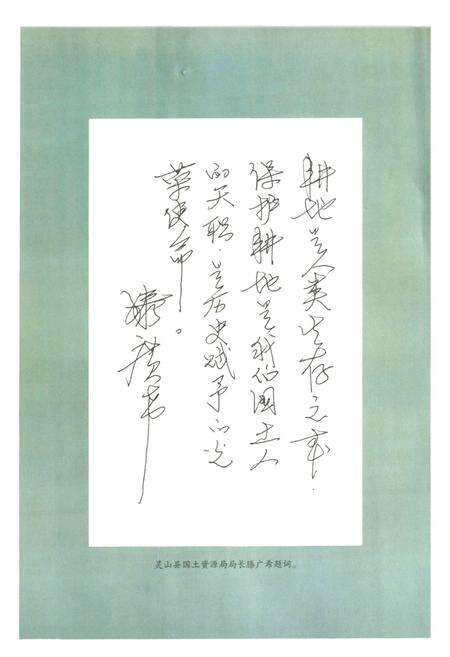 耕地是人类生存之本.
保护耕地是我们国土人
的天职.是历史赋予的光
荣使命。
滕广希
灵山县国土资源局局长滕广希题词。